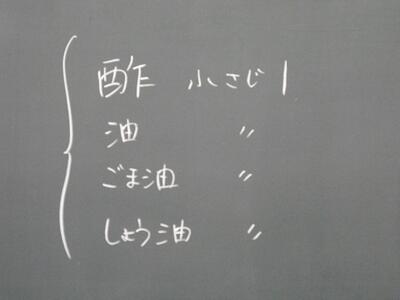 酢 小さじ1
油 〃
ごま油 〃
しょう油 〃